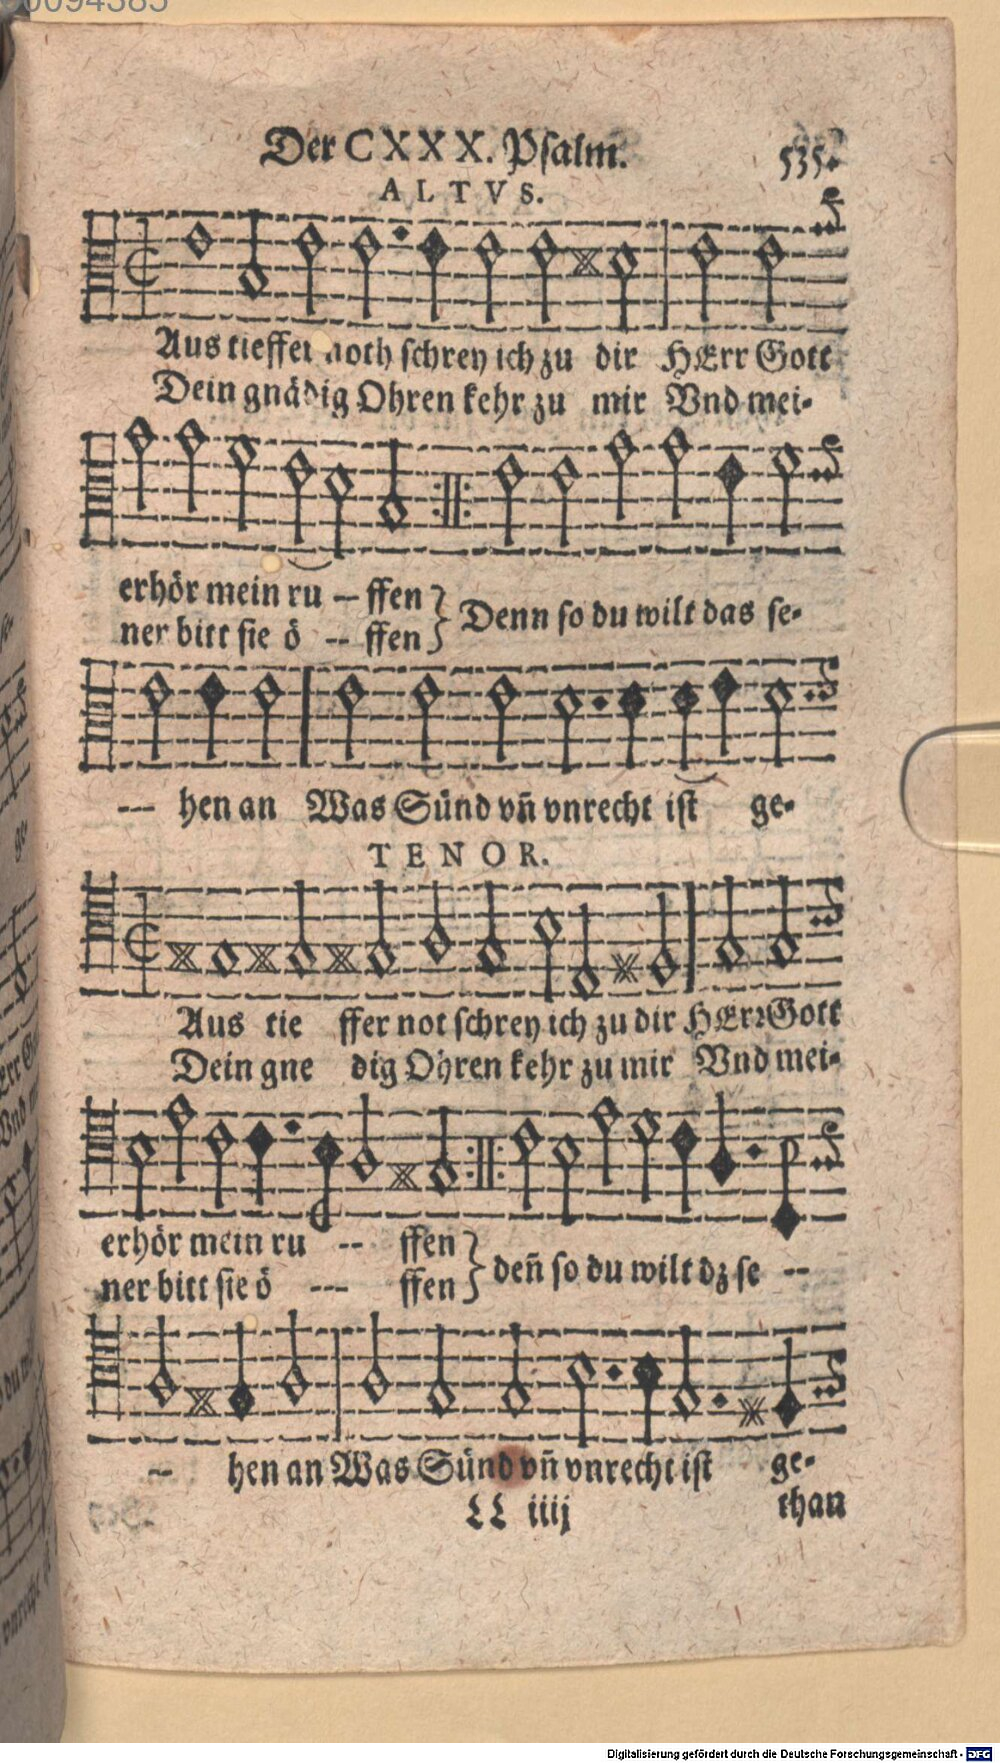 Der CXXX. Psalm. 535.
ALTVS.
Aus tieffer noth schrey ich zu dir HErr Gott
Dein gnädig Ohren kehr zu mir Vnd mei-
erhör mein ru -- ffen } Denn so du wilt das se-
ner bitt sie ö -- ffen
--- hen an Was Sünd vñ vnrecht ist ge-
TENOR.
Aus tie ffer not schrey ich zu dir HErr Gott
Dein gne dig Ohren kehr zu mir Vnd mei-
erhör mein ru -- ffen } deñ so du wilt dz se --
ner bitt sie ö --- ffen
-- hen an Was Sünd vñ vnrecht ist ge-
LL iiij than
Digitalisierung gefördert durch die Deutsche Forschungsgemeinschaft - DFG